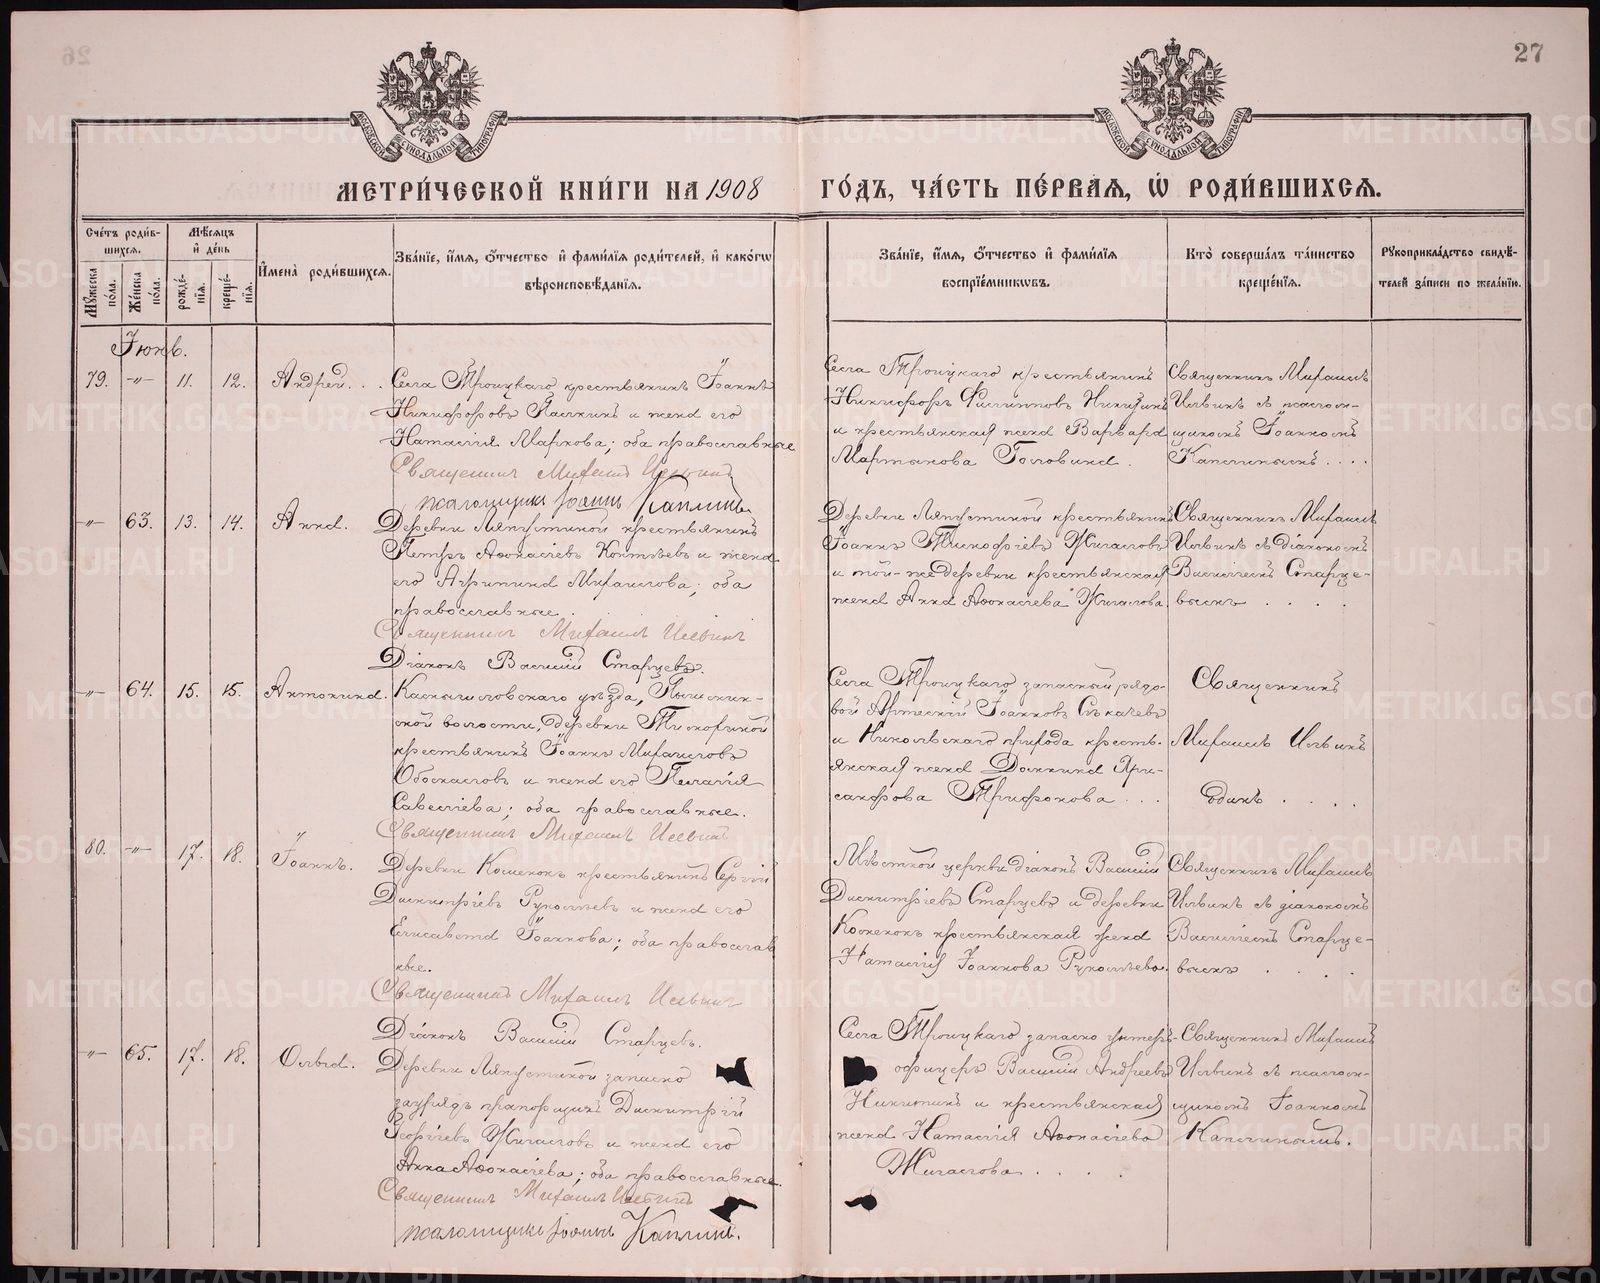 26
27
МОСКОВСКОЙ СѴНОДАЛЬНОЙ ТИПОГРАФІИ
МОСКОВСКОЙ СѴНОДАЛЬНОЙ ТИПОГРАФІИ
МЕТРИ́ЧЕСКОЙ КНИ́ГИ НА 1908 ГО́ДЪ, ЧА́СТЬ ПЕ́РВАЯ, Ѽ РОДИ́ВШИХСЯ.
Сче́тъ роди́в-
шихся.
Мꙋ́жеска по́ла.
Же́нска по́ла.
Мѣ́сяцъ
и де́нь
рожде́-
нїя.
креще́-
нїя.
И́мена роди́вшихся.
Зва́нїе, и́мя, ѻ́тчество и фами́лїя роди́телей, и како́гѡ
вѣроисповѣ́данїя.
Зва́нїе, и́мя, ѻ́тчество и фами́лїя
воспрїе́мникѡвъ.
Кто̀ соверша́лъ та́инство
креще́нїя.
Рꙋкоприкла́дство свидѣ́-
телей за́писи по жела́нїю.
Іюнь.
79. -"- 11. 12. Андрей. . .
Села Троицкаго крестьянинъ Іоаннъ
Никифоровъ и жена его
Наталія Маркова; оба православные
Священникъ Михаилъ Ильинъ
псаломщикъ Іоаннъ Каплинъ
Села Троицкаго крестьянинъ
Никифоръ Филипповъ
и крестьянская жена Варвара
Мартынова Головина.
Священникъ Михаилъ
Ильинъ съ псалом-
щикомъ Іоанномъ
Каплинымъ. . . .
-"- 63. 13. 14. Анна.
Деревни Ляпустиной крестьянинъ
Петръ Аѳонасіевъ Коптѣевъ и жена
его Агрипина Михаилова; оба
православные.
Священникъ Михаилъ Ильинъ
Діаконъ Василій Старцевъ.
Деревни Ляпустиной крестьянинъ
Іоаннъ Тимофіевъ Жигаловъ
и той-же деревни крестьянская
жена Анна Аѳонасіева Жигалова.
Священникъ Михаилъ
Ильинъ съ діакономъ
Василіемъ Старце-
вымъ . . . .
-"- 64. 15. 15. Антонина.
Камышловскаго уѣзда, Пышмин-
ской волости, деревни Тимофиной
крестьянинъ Іоаннъ Михаиловъ
и жена его Пелагія
Савеліева; оба православные.
Священникъ Михаилъ Ильинъ
Села Троицкаго запасный рядо-
вой Артемій Іоанновъ
и Никольскаго прихода кресть-
янская жена Домнина Хри-
санфова Трифонова . . .
Священникъ
Михаилъ Ильинъ
Одинъ . . . .
80. -"- 17. 18. Іоаннъ.
Деревни крестьянинъ Сергій
Димитріевъ и жена его
Елисавета Іоаннова; оба православ
ные.
Священникъ Михаилъ Ильинъ
Діаконъ Василій Старцевъ.
Мѣстной церкви діаконъ Василій
Димитріевъ Старцевъ и деревни
крестьянская жена
Наталія Іоаннова
Священникъ Михаилъ
Ильинъ съ діакономъ
Василіемъ Старце-
вымъ . . . .
-"- 65. 17. 18. Ольга.
Деревни Ляпустиной запасно
зауряд прапорщикъ Димитрій
Георгіевъ Жигаловъ и жена его
Анна Аѳонасіева; оба православные.
Священникъ Михаилъ Ильинъ
псаломщикъ Іоаннъ Каплинъ.
Села Троицкаго запасно унтеръ-
офицеръ Василій Андреевъ
Никитинъ и крестьянская
жена Наталія Аѳонасіева
Жигалова . . .
Священникъ Михаилъ
Ильинъ съ псалом-
щикомъ Іоанномъ
Каплинымъ.
METRIKI.GASO-URAL.RU